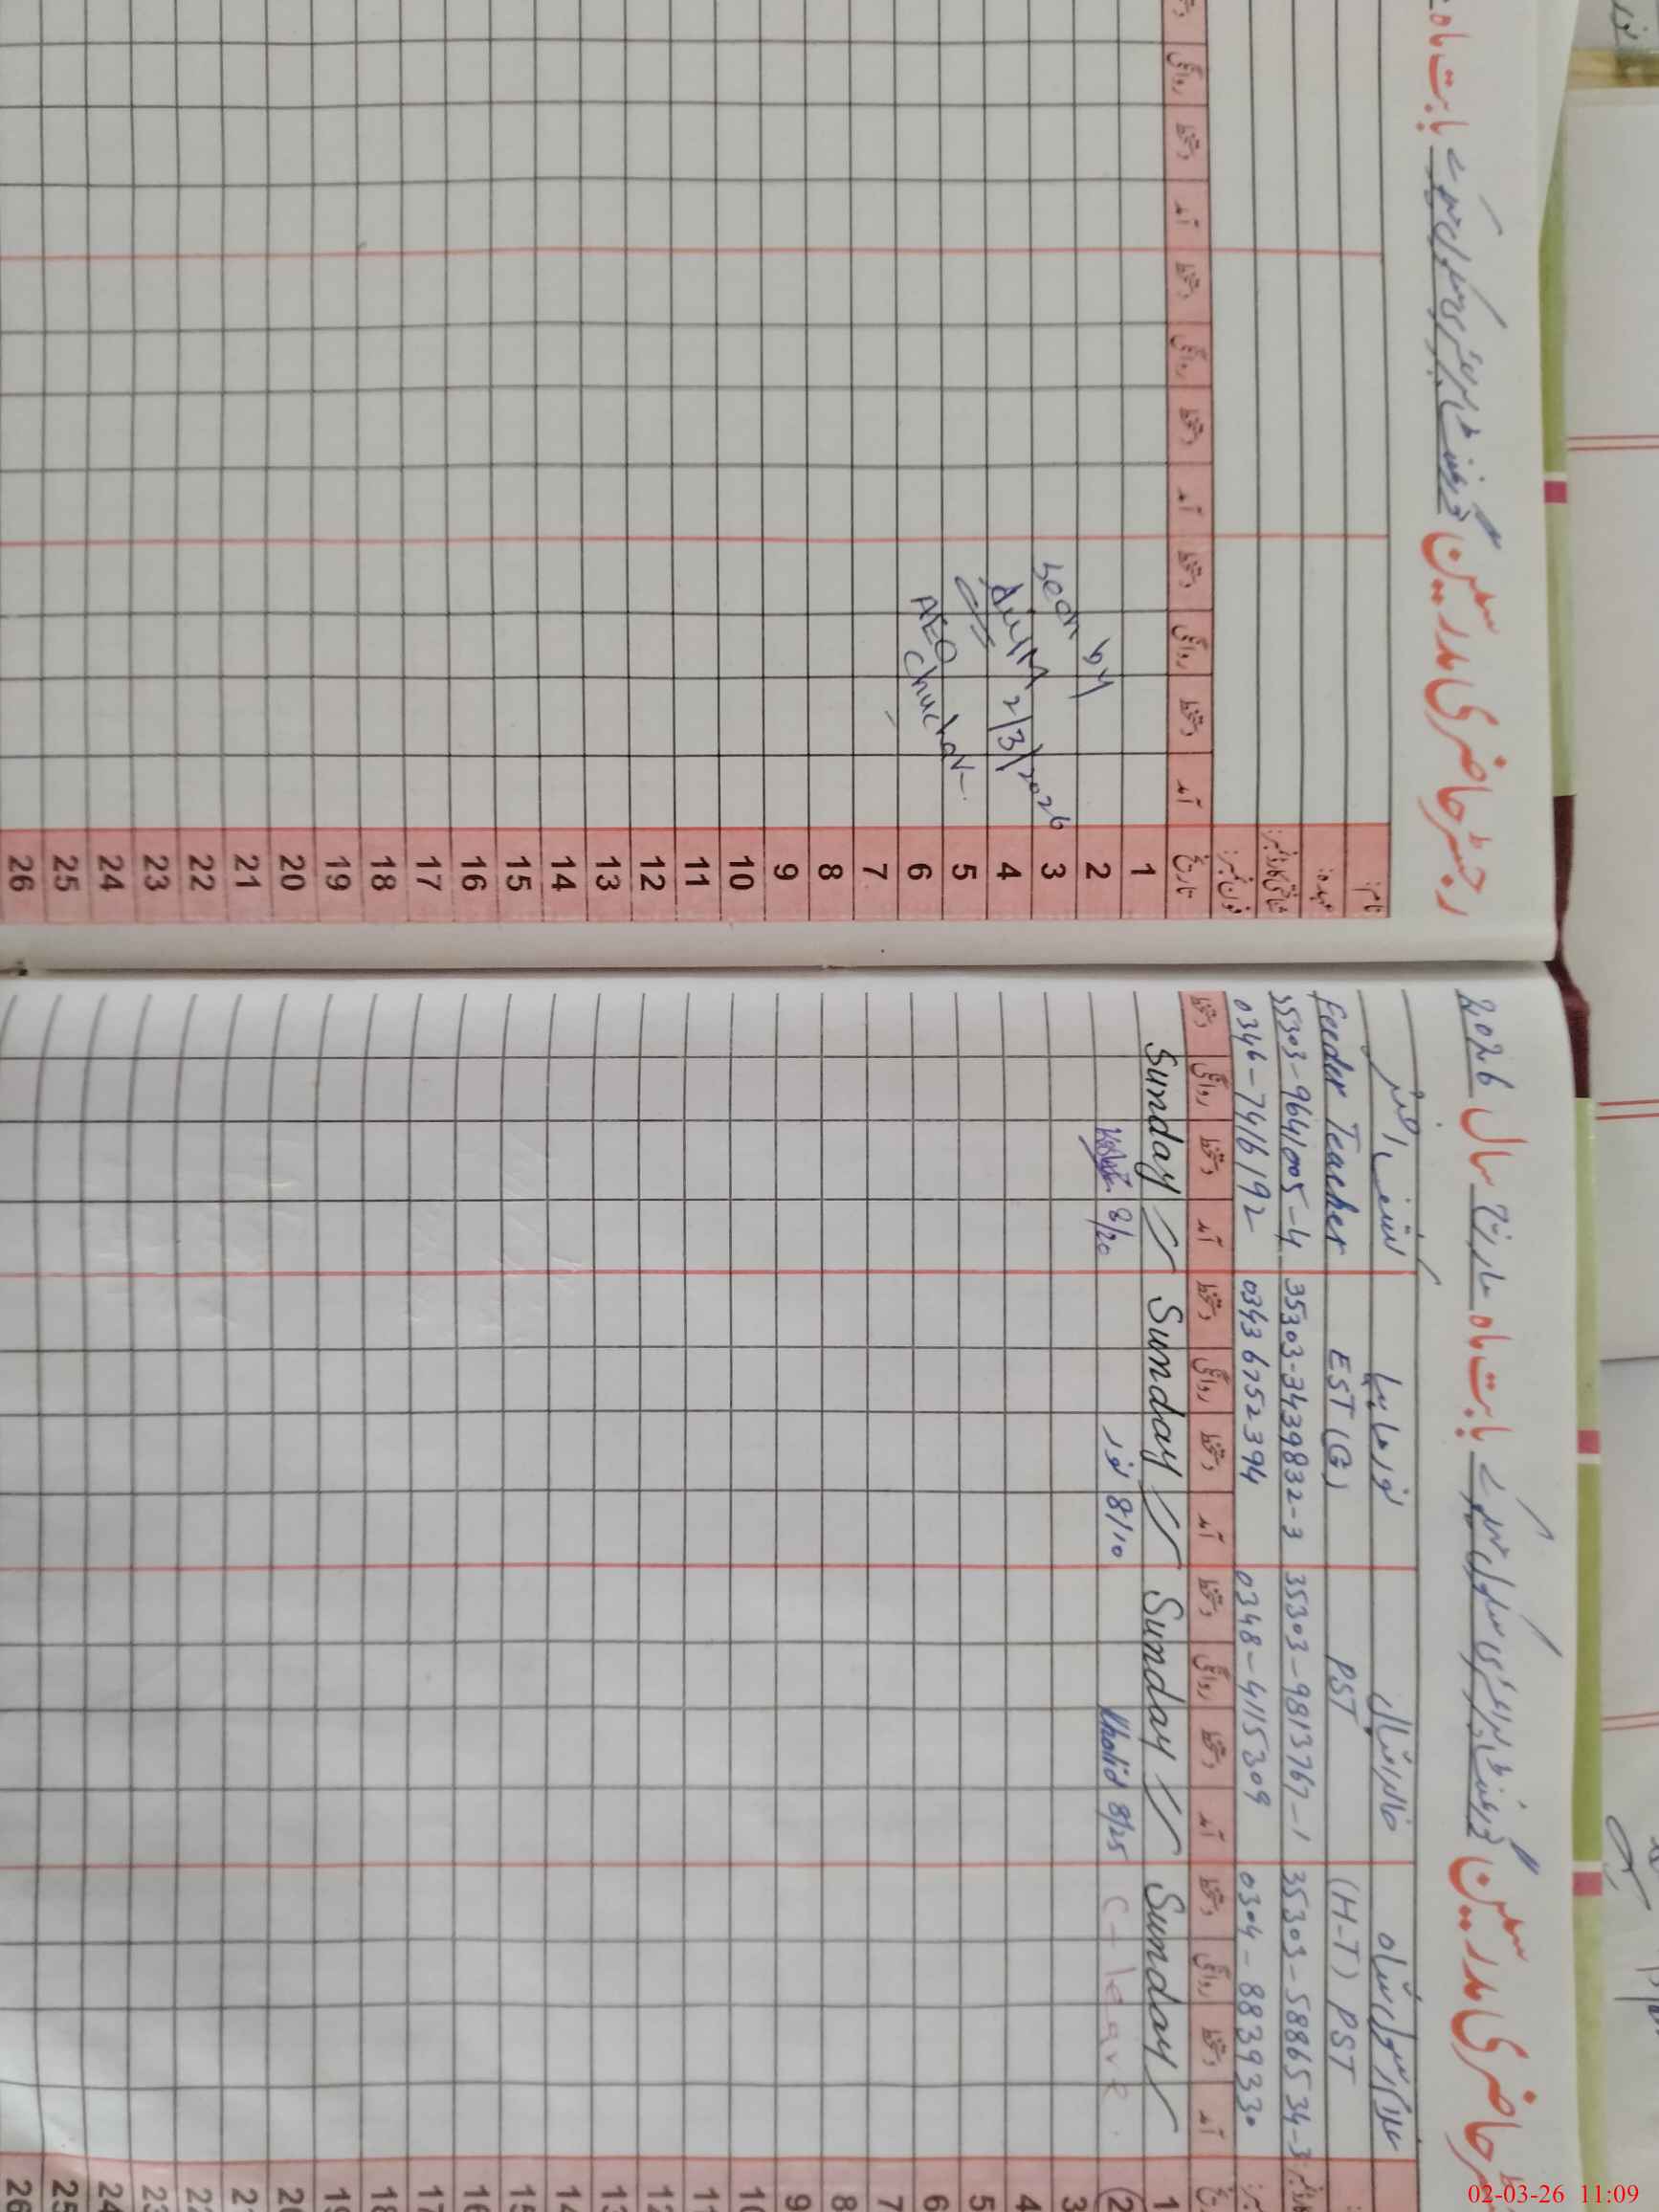 رجسٹر حاضری مدرسین گورنمنٹ پرائمری سکول بابت ماہ
نام:
عہدہ:
شناختی کارڈ نمبر:
فون نمبر:
تاریخ آمد دستخط روانگی دستخط آمد دستخط روانگی دستخط آمد دستخط روانگی
1
2
3
4
5
6
7
8
9
10
11
12
13
14
15
16
17
18
19
20
21
22
23
24
25
26
Seen by
2/3/2026
AEO
حاضری مدرسین گورنمنٹ پرائمری سکول بابت ماہ مارچ سال 2026
خالد اقبال نور
(H-T) PST PST EST (G) Feeder Teacher
35303-5886534-3 35303-9813767-1 35303-3439832-3 35303-9641005-4
0304-8839330 0348-4115309 03436752394 0346-7416192
آمد دستخط روانگی دستخط آمد دستخط روانگی دستخط آمد دستخط روانگی دستخط آمد دستخط روانگی دستخط
1 Sunday Sunday Sunday Sunday
2 C-leave 8/25 Khalid 8/10 نور 8/20
3
4
5
6
7
8
9
10
11
12
13
14
15
16
17
18
19
20
21
22
23
24
25
26
02-03-26 11:09